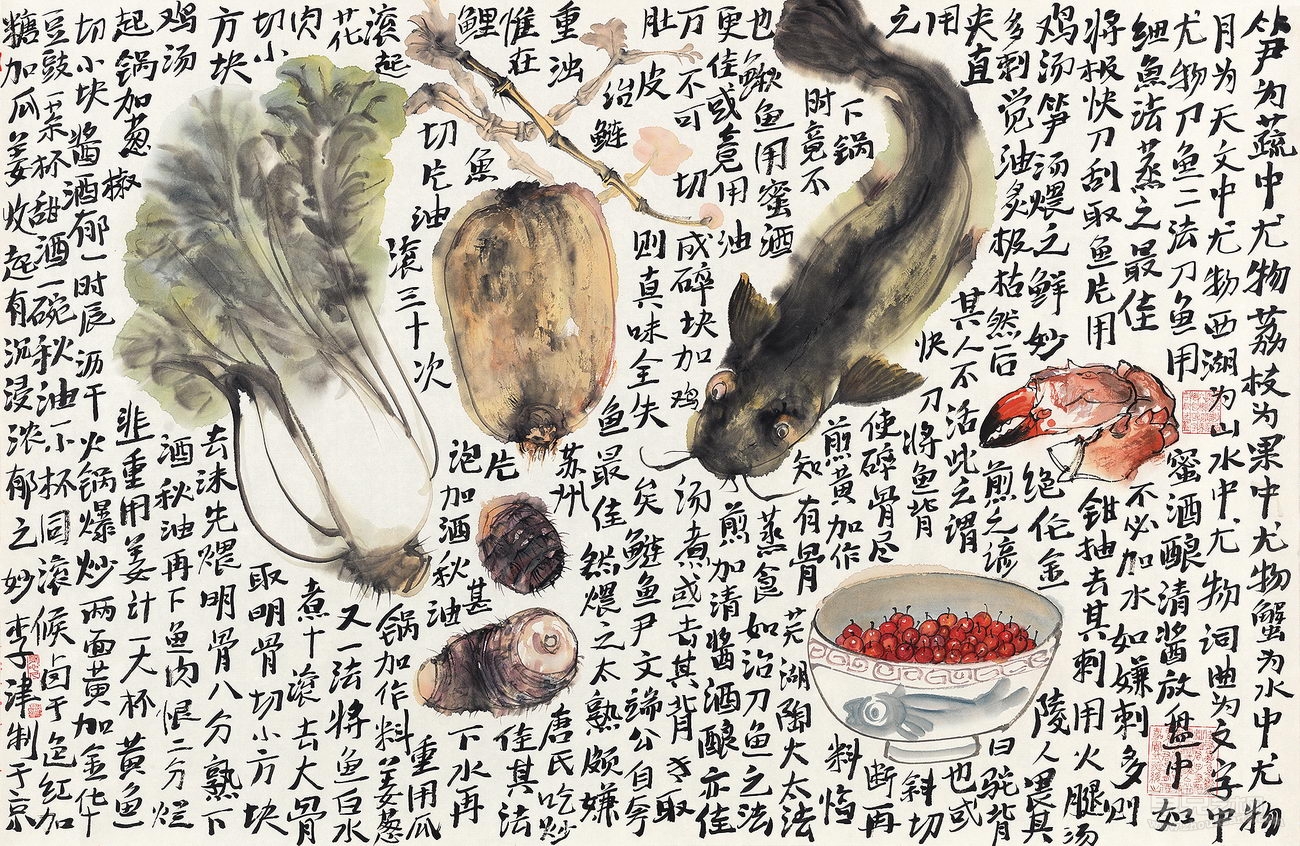 笋为蔬中尤物荔枝为果中尤物蟹为水中尤物
月为天文中尤物西湖为山水中尤物词曲为文字中
尤物刀鱼二法刀鱼用蜜酒酿清酱放盘中如
细鱼法蒸之最佳不必加水如嫌刺多则
将极快刀刮取鱼片用钳抽去其刺用火腿汤
鸡汤笋汤煨之鲜妙绝伦金陵人畏其
多刺觉油炙极枯然后煎之谚曰驼背
夹直其人不活此之谓也或
用快刀将鱼背斜切
之使碎骨尽断再
下锅煎黄加作料临
时竟不知有骨芜湖陶大太法
也鳅鱼用蜜酒蒸食如治刀鱼之法
更佳或竟用油煎加清酱酒酿亦佳
万不可切成碎块加鸡汤煮或去其背专取
肚皮则真味全失矣鲢鱼尹文端公自夸
治鲢鱼最佳然煨之太熟颇嫌
重浊苏州唐氏吃炒
惟在片甚佳其法
鲤鱼切片油泡加酒秋油
滚三十次下水再
滚起锅加作料姜葱重用瓜
花又一法将鱼白水
肉煮十滚去大骨
切小取明骨切小方块
方块去沫先煨明骨八分熟下
鸡汤酒秋油再下鱼肉煨二分烂
起锅加葱椒韭重用姜汁一大杯黄鱼
切小块酱酒郁一时辰沥干火锅爆炒两面黄加金华
豆豉一茶杯甜酒一碗秋油一小杯同滚候卤干色红加
糖加瓜姜收起有沉浸浓郁之妙李津制于京